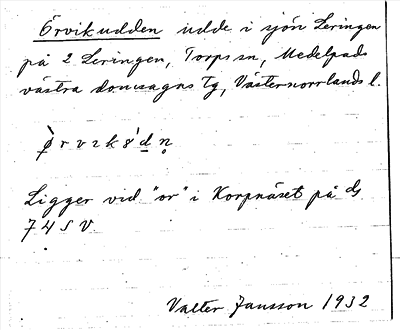 Örvikudden udde i sjön Leringen
på 2 Leringen, Torps sn, Medelpads
västra domsagas tg, Västernorrlands l.
Ligger vid "or" i Korpnäset på
74 S V
Valter Jansson 1932